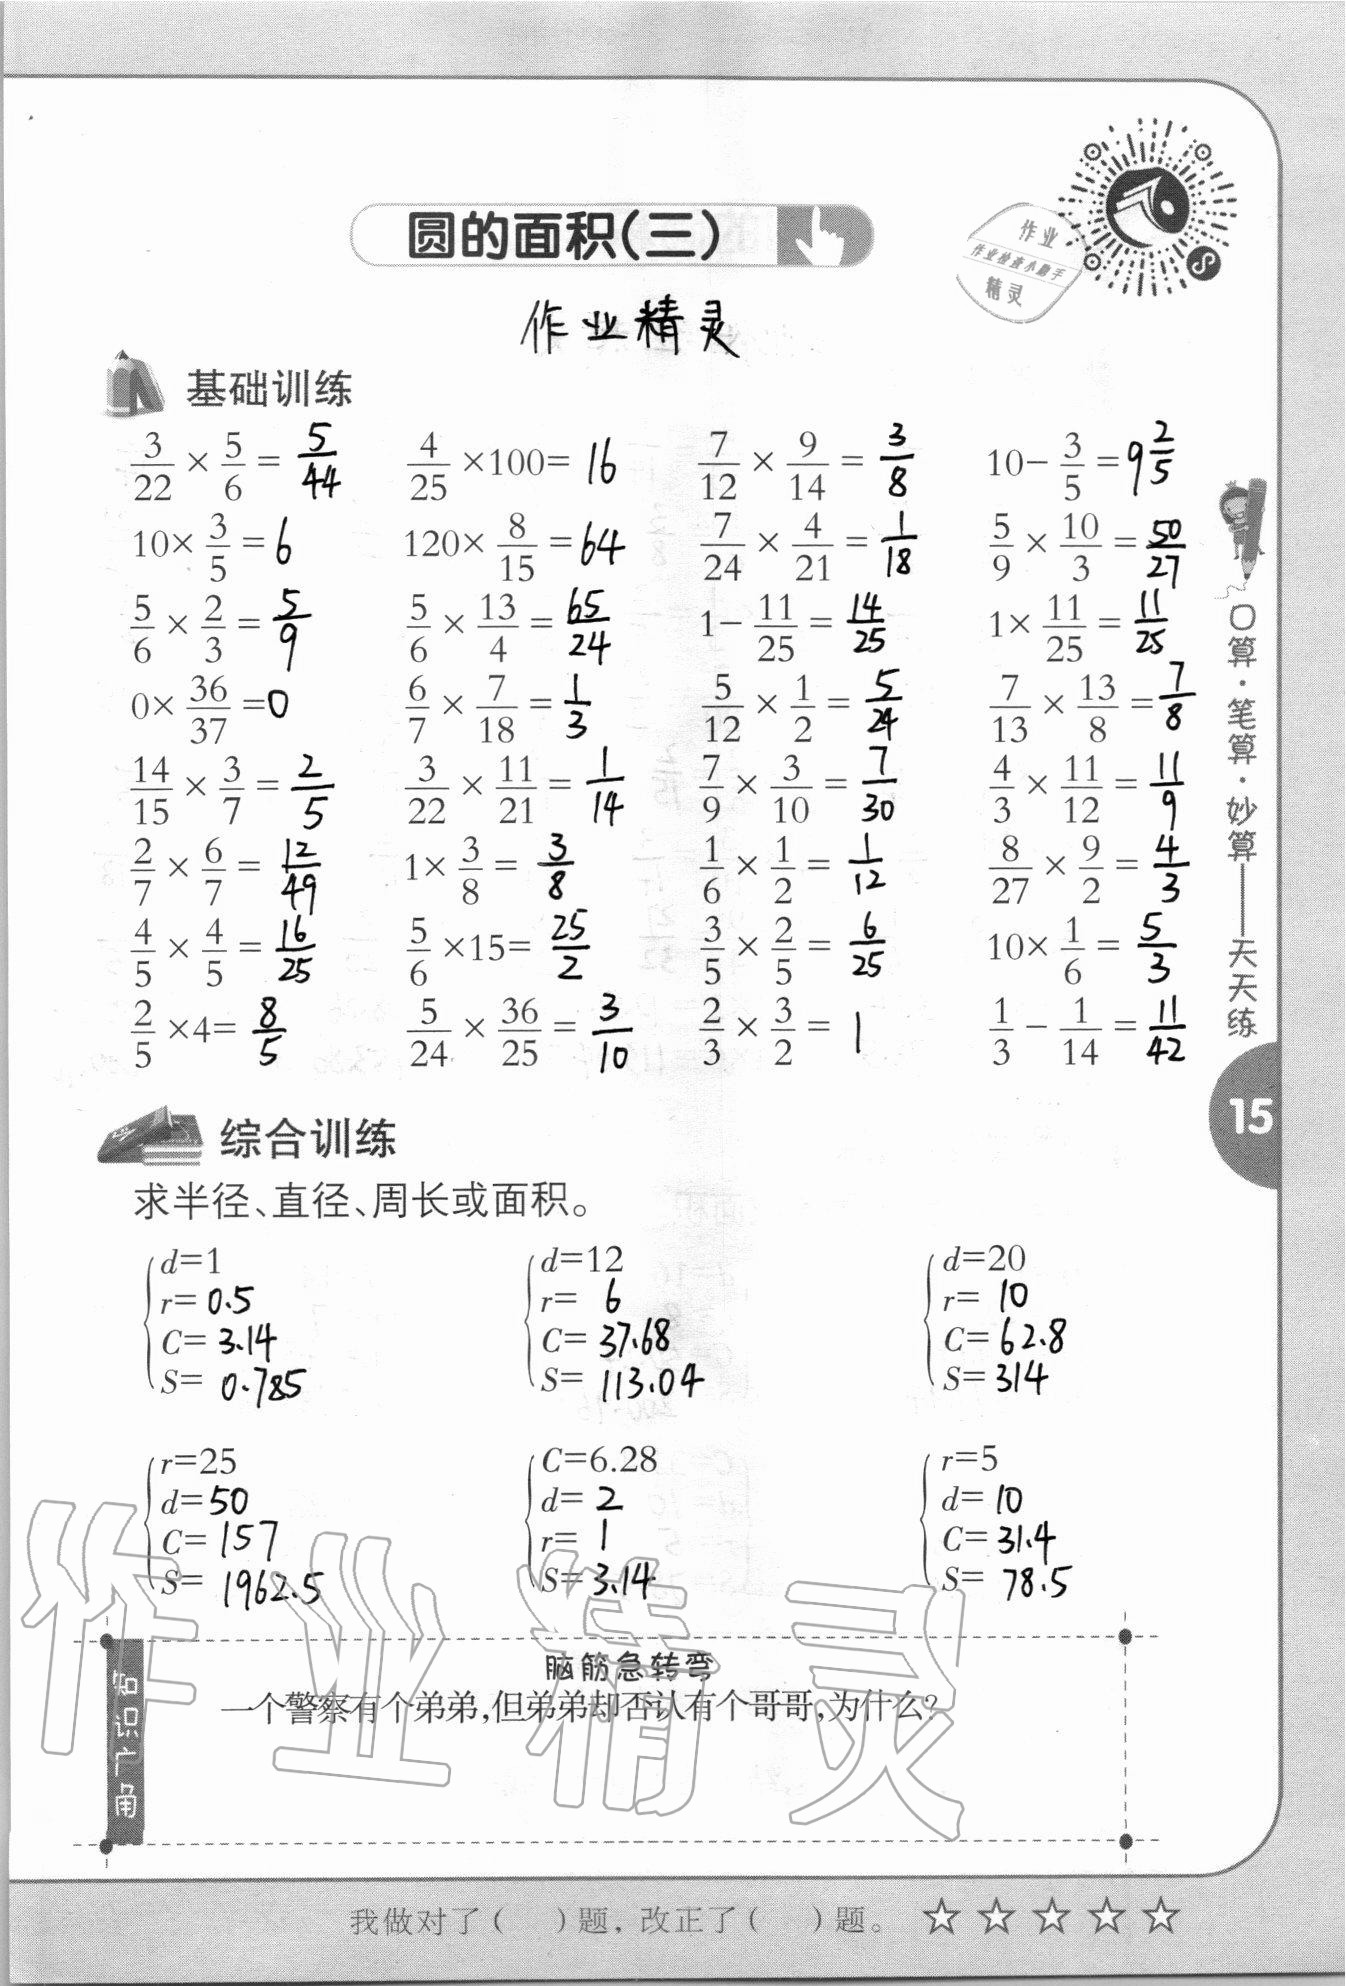 圆的面积(三)
作业
作业检查小助手
精灵
作业精灵
基础训练
3/22 × 5/6 = 5/44  4/25 ×100= 16  7/12 × 9/14 = 3/8  10− 3/5 = 9 2/5
10× 3/5 = 6  120× 8/15 = 64  7/24 × 4/21 = 1/18  5/9 × 10/3 = 50/27
5/6 × 2/3 = 5/9  5/6 × 13/4 = 65/24  1− 11/25 = 14/25  1× 11/25 = 11/25
0× 36/37 = 0  6/7 × 7/18 = 1/3  5/12 × 1/2 = 5/24  7/13 × 13/8 = 7/8
14/15 × 3/7 = 2/5  3/22 × 11/21 = 1/14  7/9 × 3/10 = 7/30  4/3 × 11/12 = 11/9
2/7 × 6/7 = 12/49  1× 3/8 = 3/8  1/6 × 1/2 = 1/12  8/27 × 9/2 = 4/3
4/5 × 4/5 = 16/25  5/6 ×15= 25/2  3/5 × 2/5 = 6/25  10× 1/6 = 5/3
2/5 ×4= 8/5  5/24 × 36/25 = 3/10  2/3 × 3/2 = 1  1/3 − 1/14 = 11/42
口算·笔算·妙算——天天练
15
综合训练
求半径、直径、周长或面积。
d=1  d=12  d=20
r= 0.5  r= 6  r= 10
C= 3.14  C= 37.68  C= 62.8
S= 0.785  S= 113.04  S= 314
r=25  C=6.28  r=5
d= 50  d= 2  d= 10
C= 157  r= 1  C= 31.4
S= 1962.5  S= 3.14  S= 78.5
作业精灵
知识广角
脑筋急转弯
一个警察有个弟弟,但弟弟却否认有个哥哥,为什么?
我做对了(  )题,改正了(  )题。 ☆☆☆☆☆